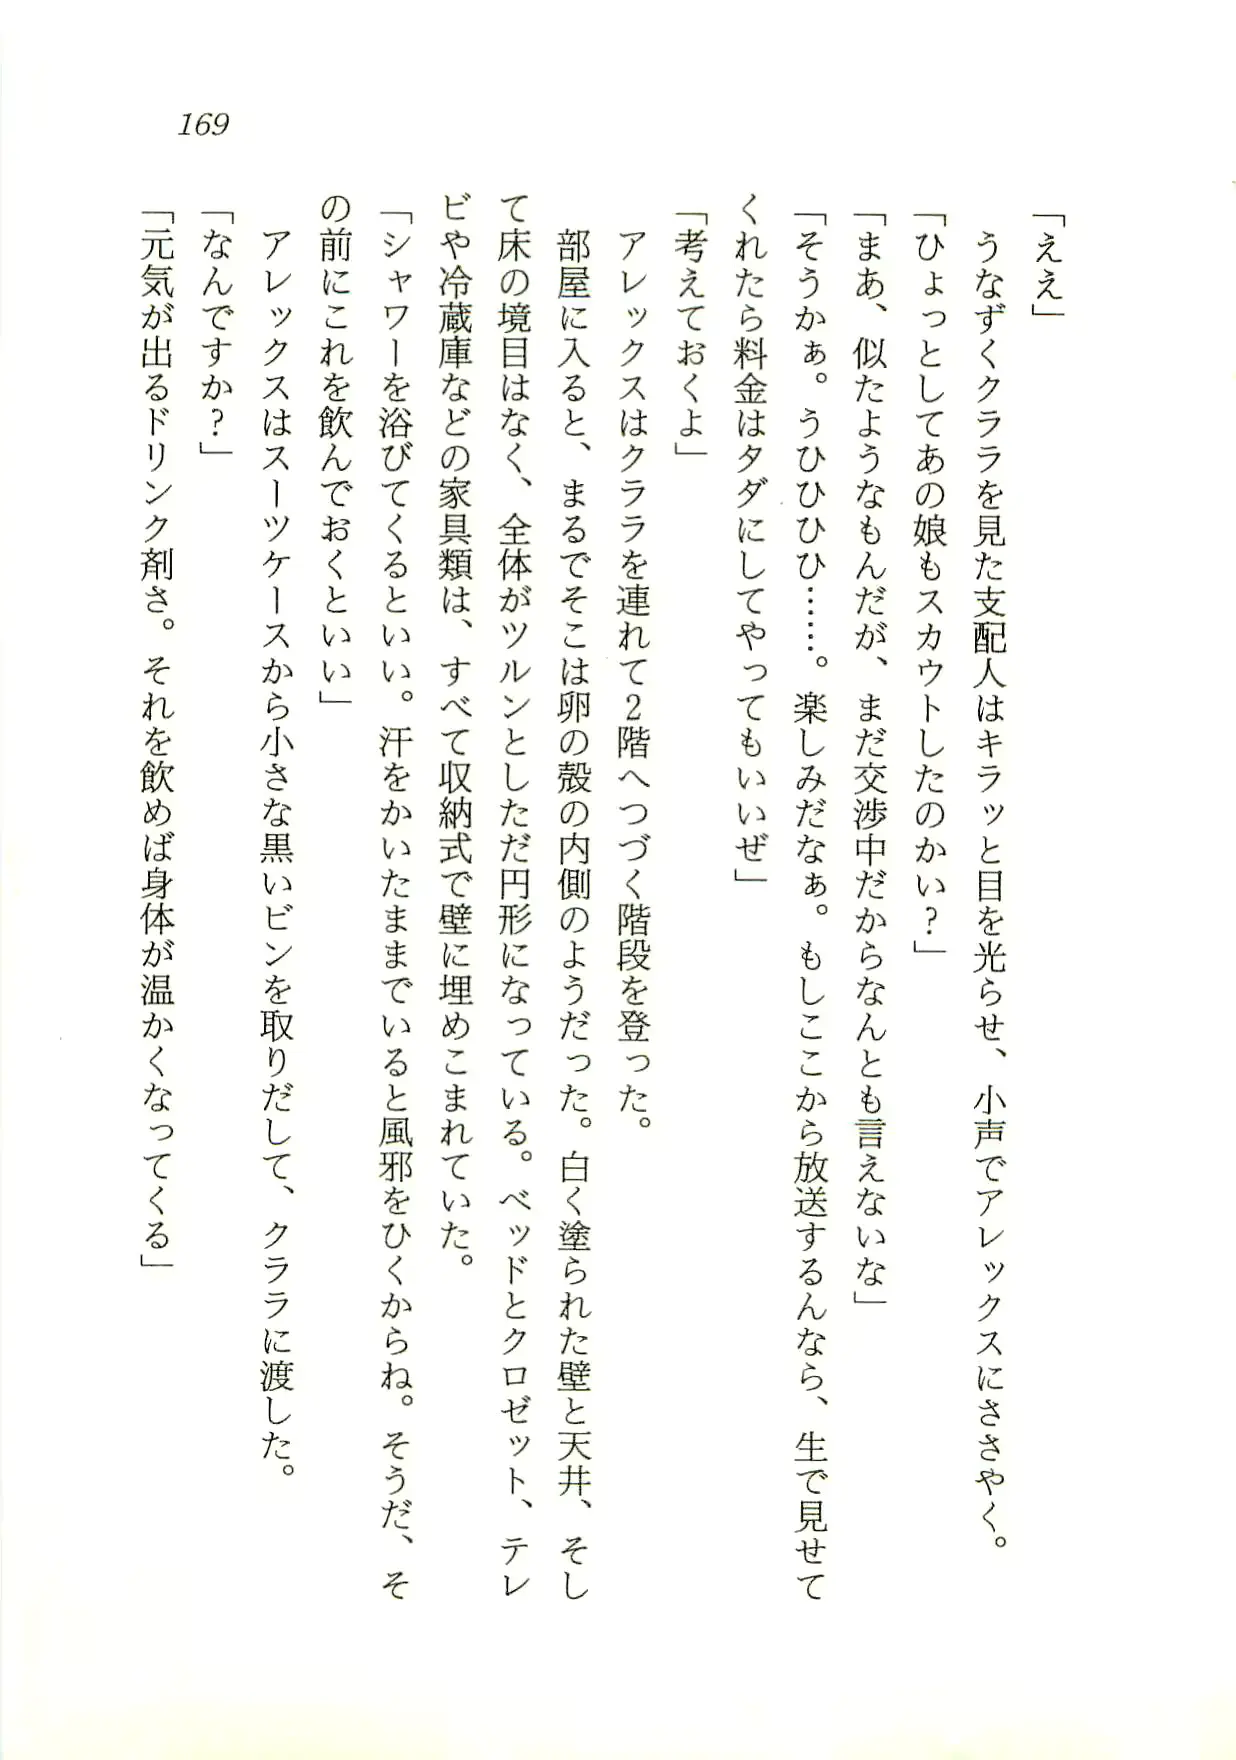 169
「ええ」
　うなずくクララを見た支配人はキラッと目を光らせ、小声でアレックスにささやく。
「ひょっとしてあの娘もスカウトしたのかい？」
「まあ、似たようなもんだが、まだ交渉中だからなんとも言えないな」
「そうかぁ。うひひひひ……。楽しみだなぁ。もしここから放送するんなら、生で見せて
くれたら料金はタダにしてやってもいいぜ」
「考えておくよ」
　アレックスはクララを連れて2階へつづく階段を登った。
　部屋に入ると、まるでそこは卵の殻の内側のようだった。白く塗られた壁と天井、そし
て床の境目はなく、全体がツルンとしただ円形になっている。ベッドとクロゼット、テレ
ビや冷蔵庫などの家具類は、すべて収納式で壁に埋めこまれていた。
「シャワーを浴びてくるといい。汗をかいたままでいると風邪をひくからね。そうだ、そ
の前にこれを飲んでおくといい」
　アレックスはスーツケースから小さな黒いビンを取りだして、クララに渡した。
「なんですか？」
「元気が出るドリンク剤さ。それを飲めば身体が温かくなってくる」